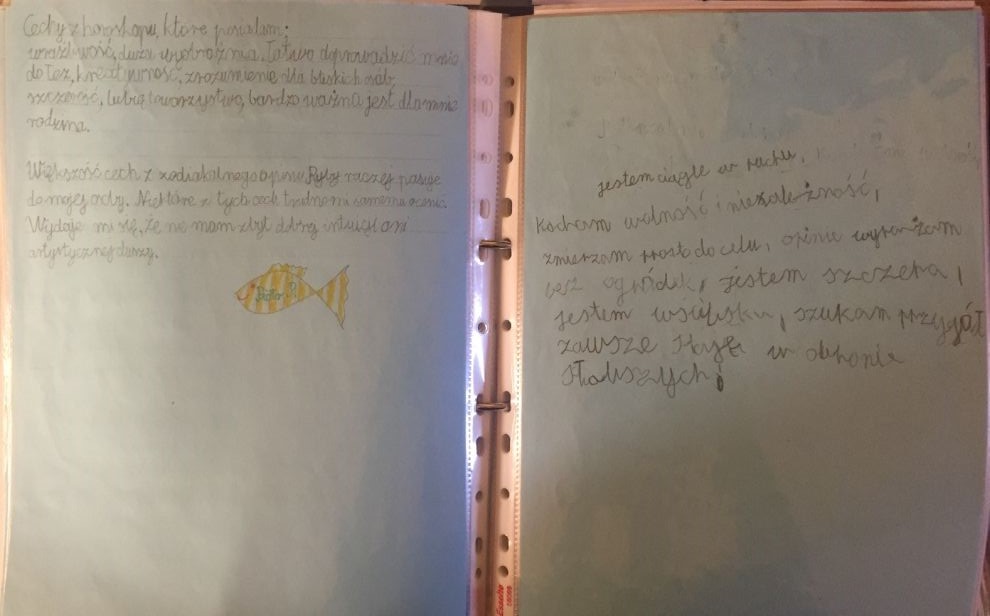 Cechy z horoskopu, które posiadam:
wrażliwość, duża wyobraźnia, łatwo doprowadzić mnie
do łez, kreatywność, zrozumienie dla bliskich osób,
szczerość, lubię towarzystwo, bardzo ważna jest dla mnie
rodzina.
Większość cech z zodiakalnego opisu Ryby raczej pasuje
do mojej osoby. Niektóre z tych cech trudno mi samemu ocenić.
Wydaje mi się, że nie mam zbyt dobrej intuicji ani
artystycznej duszy.
jestem ciągle w ruchu,
kocham wolność i niezależność,
zmierzam prosto do celu, opinie wyrażam
bez ogródek, jestem szczera,
jestem wścipska, szukam przygód
zawsze staję w obronie
słabszych
Esselte